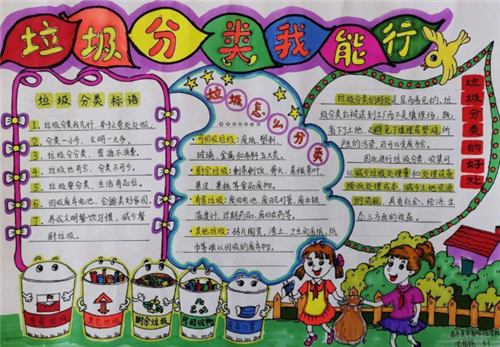 垃圾分类我能行
垃圾分类标语
1、垃圾分类我先行，举手之劳处处做。
2、分类一小步，文明一大步。
3、垃圾分一分，
4、垃圾也有家，分类不可少。
5、垃圾要分类，生活有品位。
6、回收废弃电池，
7、养成文明餐饮习惯，减少餐
厨垃圾。
垃圾怎么分类
可回收垃圾：废纸、塑料、
玻璃、金属和布料五大类。
厨余垃圾：剩菜剩饭、骨头、菜根菜叶、
果皮、果核等食品废物。
有害垃圾：废旧电池、废日光灯管、废水银
温度计、过期药品、废旧台历等。
其他垃圾：砖瓦陶瓷、渣土、卫生间废纸、纸
巾等难以回收的废弃物。
垃圾分类的好处
垃圾分类的好处是显而易见的，垃
圾分类后被送到工厂而不是填埋场，既
省下了土地，又避免了填埋或焚烧所
产生的污染，还可以变废为宝。
因此进行垃圾分类，收集可
以减少垃圾处理量和处理设备，
降低处理成本，减少土地资源
的消耗，具有社会、经济、生
态三方面的效益。
其它垃圾
厨余垃圾
可回收物